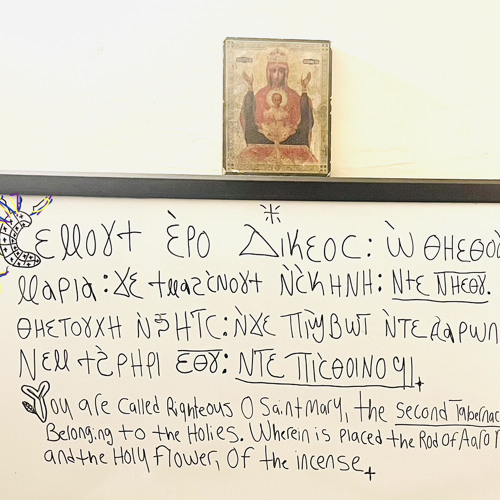 Ⲥⲉⲙⲟⲩϯ ⲉ̀ⲣⲟ ⲇⲓⲕⲉⲟⲥ: ⲱ̀ ⲑⲏⲉⲑⲟⲩ
ⲙⲁⲣⲓⲁ: ϫⲉ ϯⲙⲁϩⲥ̀ⲛⲟⲩϯ ⲛ̀ⲥ̀ⲕⲏⲛⲏ: ⲛⲧⲉ ⲛⲏⲉ̅ⲑ̅ⲩ̅.
ⲑⲏⲉⲧⲟⲩⲭⲏ ⲛ̀ϧⲏⲧⲥ: ⲛ̀ϫⲉ ⲡⲓϣ̀ⲃⲱⲧ ⲛ̀ⲧⲉ ⲁⲁⲣⲱⲛ
ⲛⲉⲙ ϯϩ̀ⲣⲏⲣⲓ ⲉ̅ⲑ̅ⲩ̅: ⲛⲧⲉ ⲡⲓⲥ̀ⲑⲟⲓⲛⲟⲩϥⲓ
You are called Righteous O Saint Mary, the second Tabernac
Belonging to the Holies. Wherein is placed the Rod of Aaro
and the Holy flower, Of the incense